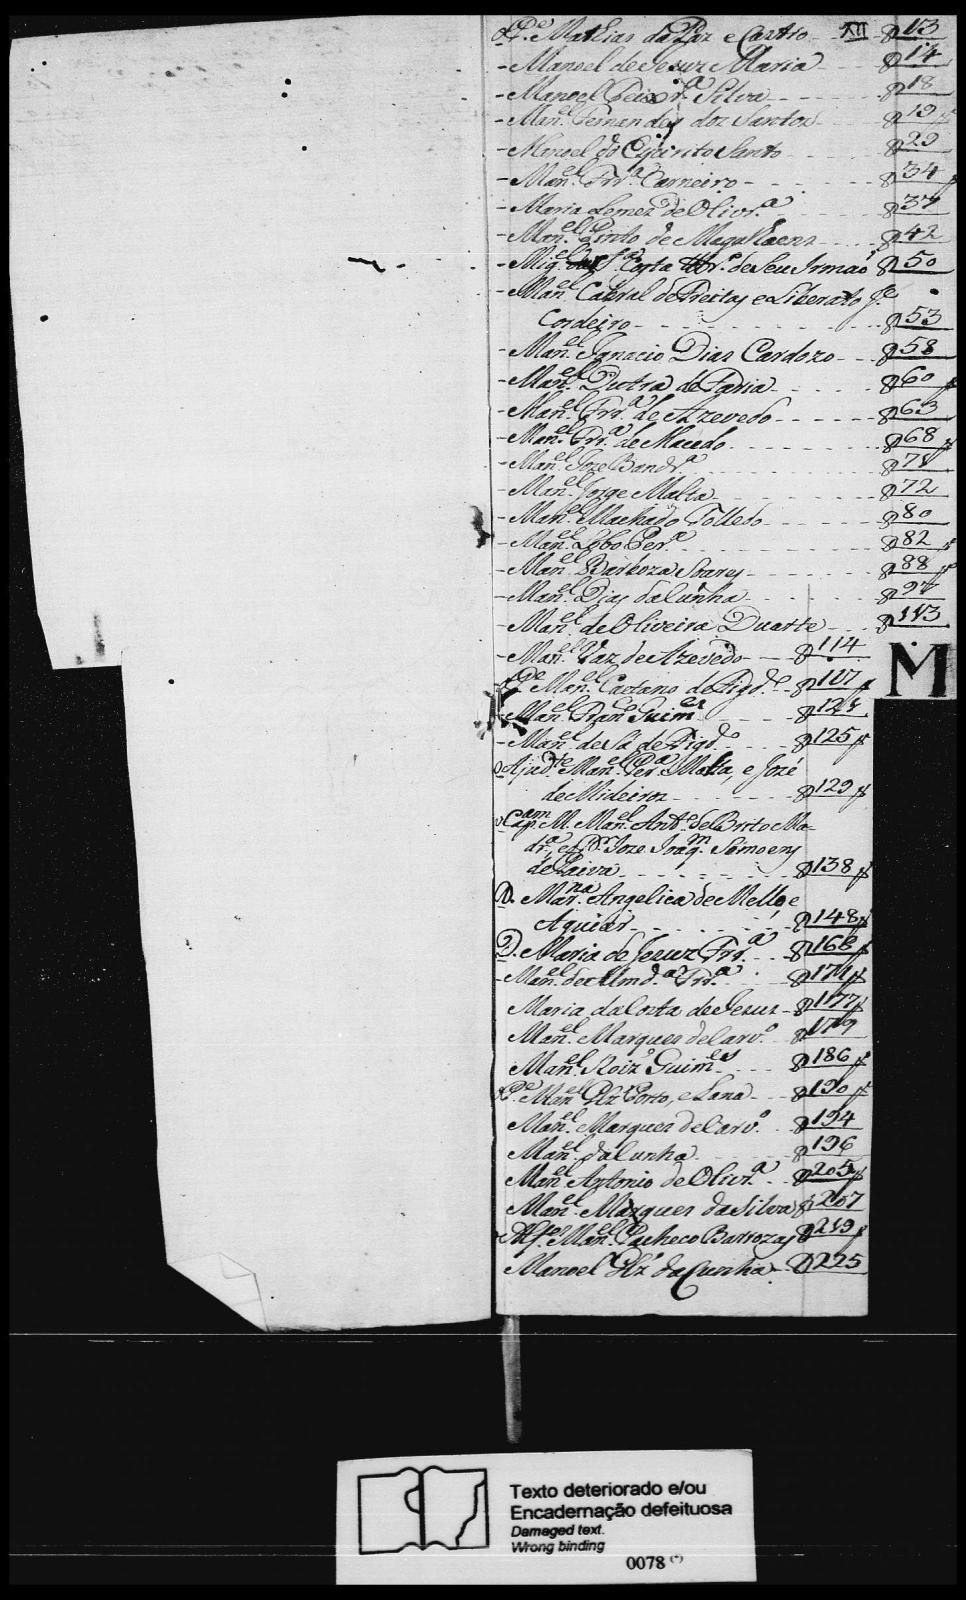 o P.e Mathias da Paz e Castro XII 8 13
- Manoel de Jesuz Maria 8 14
- Manoel Teixr.a Silva 8 18
- Man.el Fernandes dos Santos 8 19
- Manoel do Espirito Santo 8 29
- Man.el Frr.a Carneiro 8 34
- Maria Lemez de Olivr.a 8 37
- Man.el Pinto de Magalhaens 8 42
- Mig.el Costa de Seu Irmaõ 8 50
- Man.el Cabral de Freitas e Liberato J.e
Cordeiro 8 53
- Man.el Ignacio Dias Cardozo 8 58
- Man.el Dutra de Faria 8 60
- Man.el Frr.a de Azevedo 8 63
- Man.el Frr.a de Macedo 8 68
- Man.el Joze Bandr.a 8 71
- Man.el Jorge Malta 8 72
- Man.el Machado Tolledo 8 80
- Man.el Lobo Per.a 8 82
- Man.el Barboza Soares 8 88
- Man.el Dias da Cunha 8 97
- Man.el de Oliveira Duarte 8 113
- Man.el Vaz de Azevedo 8 114
M
P.e Man.el Caetano de Figd.o 8 117
- Man.el Fran.co Guim.es 8 121
- Man.el de Sá de Figd.o 8 125
o Ajud.te Man.el Per.a Malta, e Jozé
de Mideiros 8 129
o Cap.am M. Man.el Ant.o de Brito Ma-
dr.a, e o D.r Joze Joaq.m Simoens
de Paiva 8 138
D. Mar.na Angelica de Mello e
Aguiar 8 148
D. Maria de Jesuz Frr.a 8 168
- Man.el de Almd.a Frr.a 8 171
Maria da Costa de Jesus 8 177
Man.el Marques de Carv.o 8 179
Man.el Roiz' Guim.es 8 186
o P.e Man.el Glz' Porto, e Lana 8 190
Man.el Marques de Carv.o 8 194
Man.el da Cunha 8 196
Man.el Antonio de Olivr.a 8 205
Man.el Marques da Silva 8 207
o Alf.es Man.el Pacheco Barrozas 8 219
Manoel Glz' da Cunha 8 225
Texto deteriorado e/ou
Encadernação defeituosa
Damaged text.
Wrong binding
0078 (*)